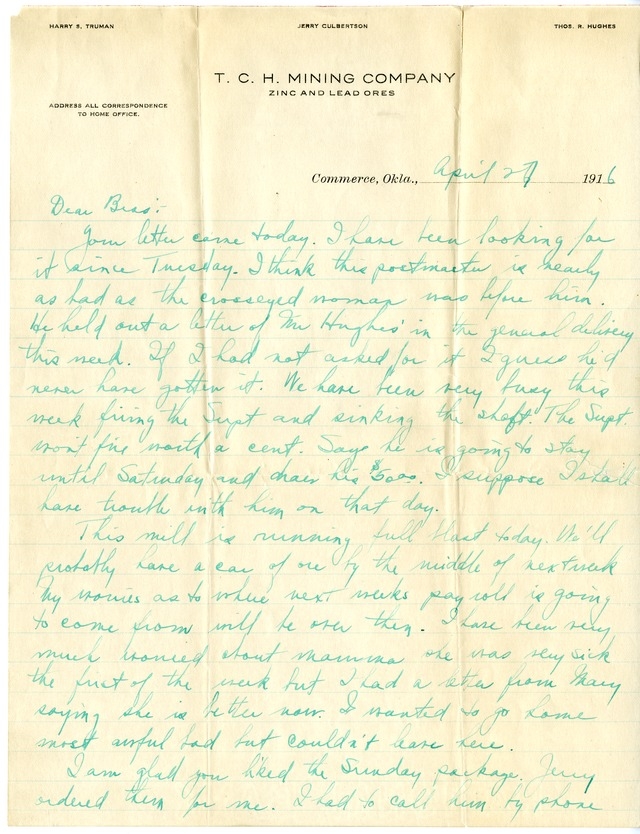 HARRY S. TRUMAN JERRY CULBERTSON THOS. R. HUGHES
T. C. H. MINING COMPANY
ZINC AND LEAD ORES
ADDRESS ALL CORRESPONDENCE
TO HOME OFFICE.
Commerce, Okla., April 27 1916
Dear Bess:-
Your letter came today. I have been looking for
it since Tuesday. I think this postmaster is nearly
as bad as the crosseyed woman was before him.
He held out a letter of Mr Hughes' in the general delivery
this week. If I had not asked for it I guess he'd
never have gotten it. We have been very busy this
week firing the Supt and sinking the shaft. The Supt.
won't fire worth a cent. Says he is going to stay
until Saturday and draw his $50.00. I suppose I shall
have trouble with him on that day.
This mill is running full blast today. We'll
probably have a car of ore by the middle of next week
My worries as to where next weeks payroll is going
to come from will be over then. I have been very
much worried about mamma she was very sick
the first of the week but I had a letter from Mary
saying she is better now. I wanted to go home
most awful bad but couldn't leave here.
I am glad you liked the Sunday package. Jerry
ordered them for me. I had to call him by phone